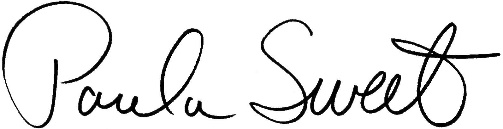 Paula Sweet